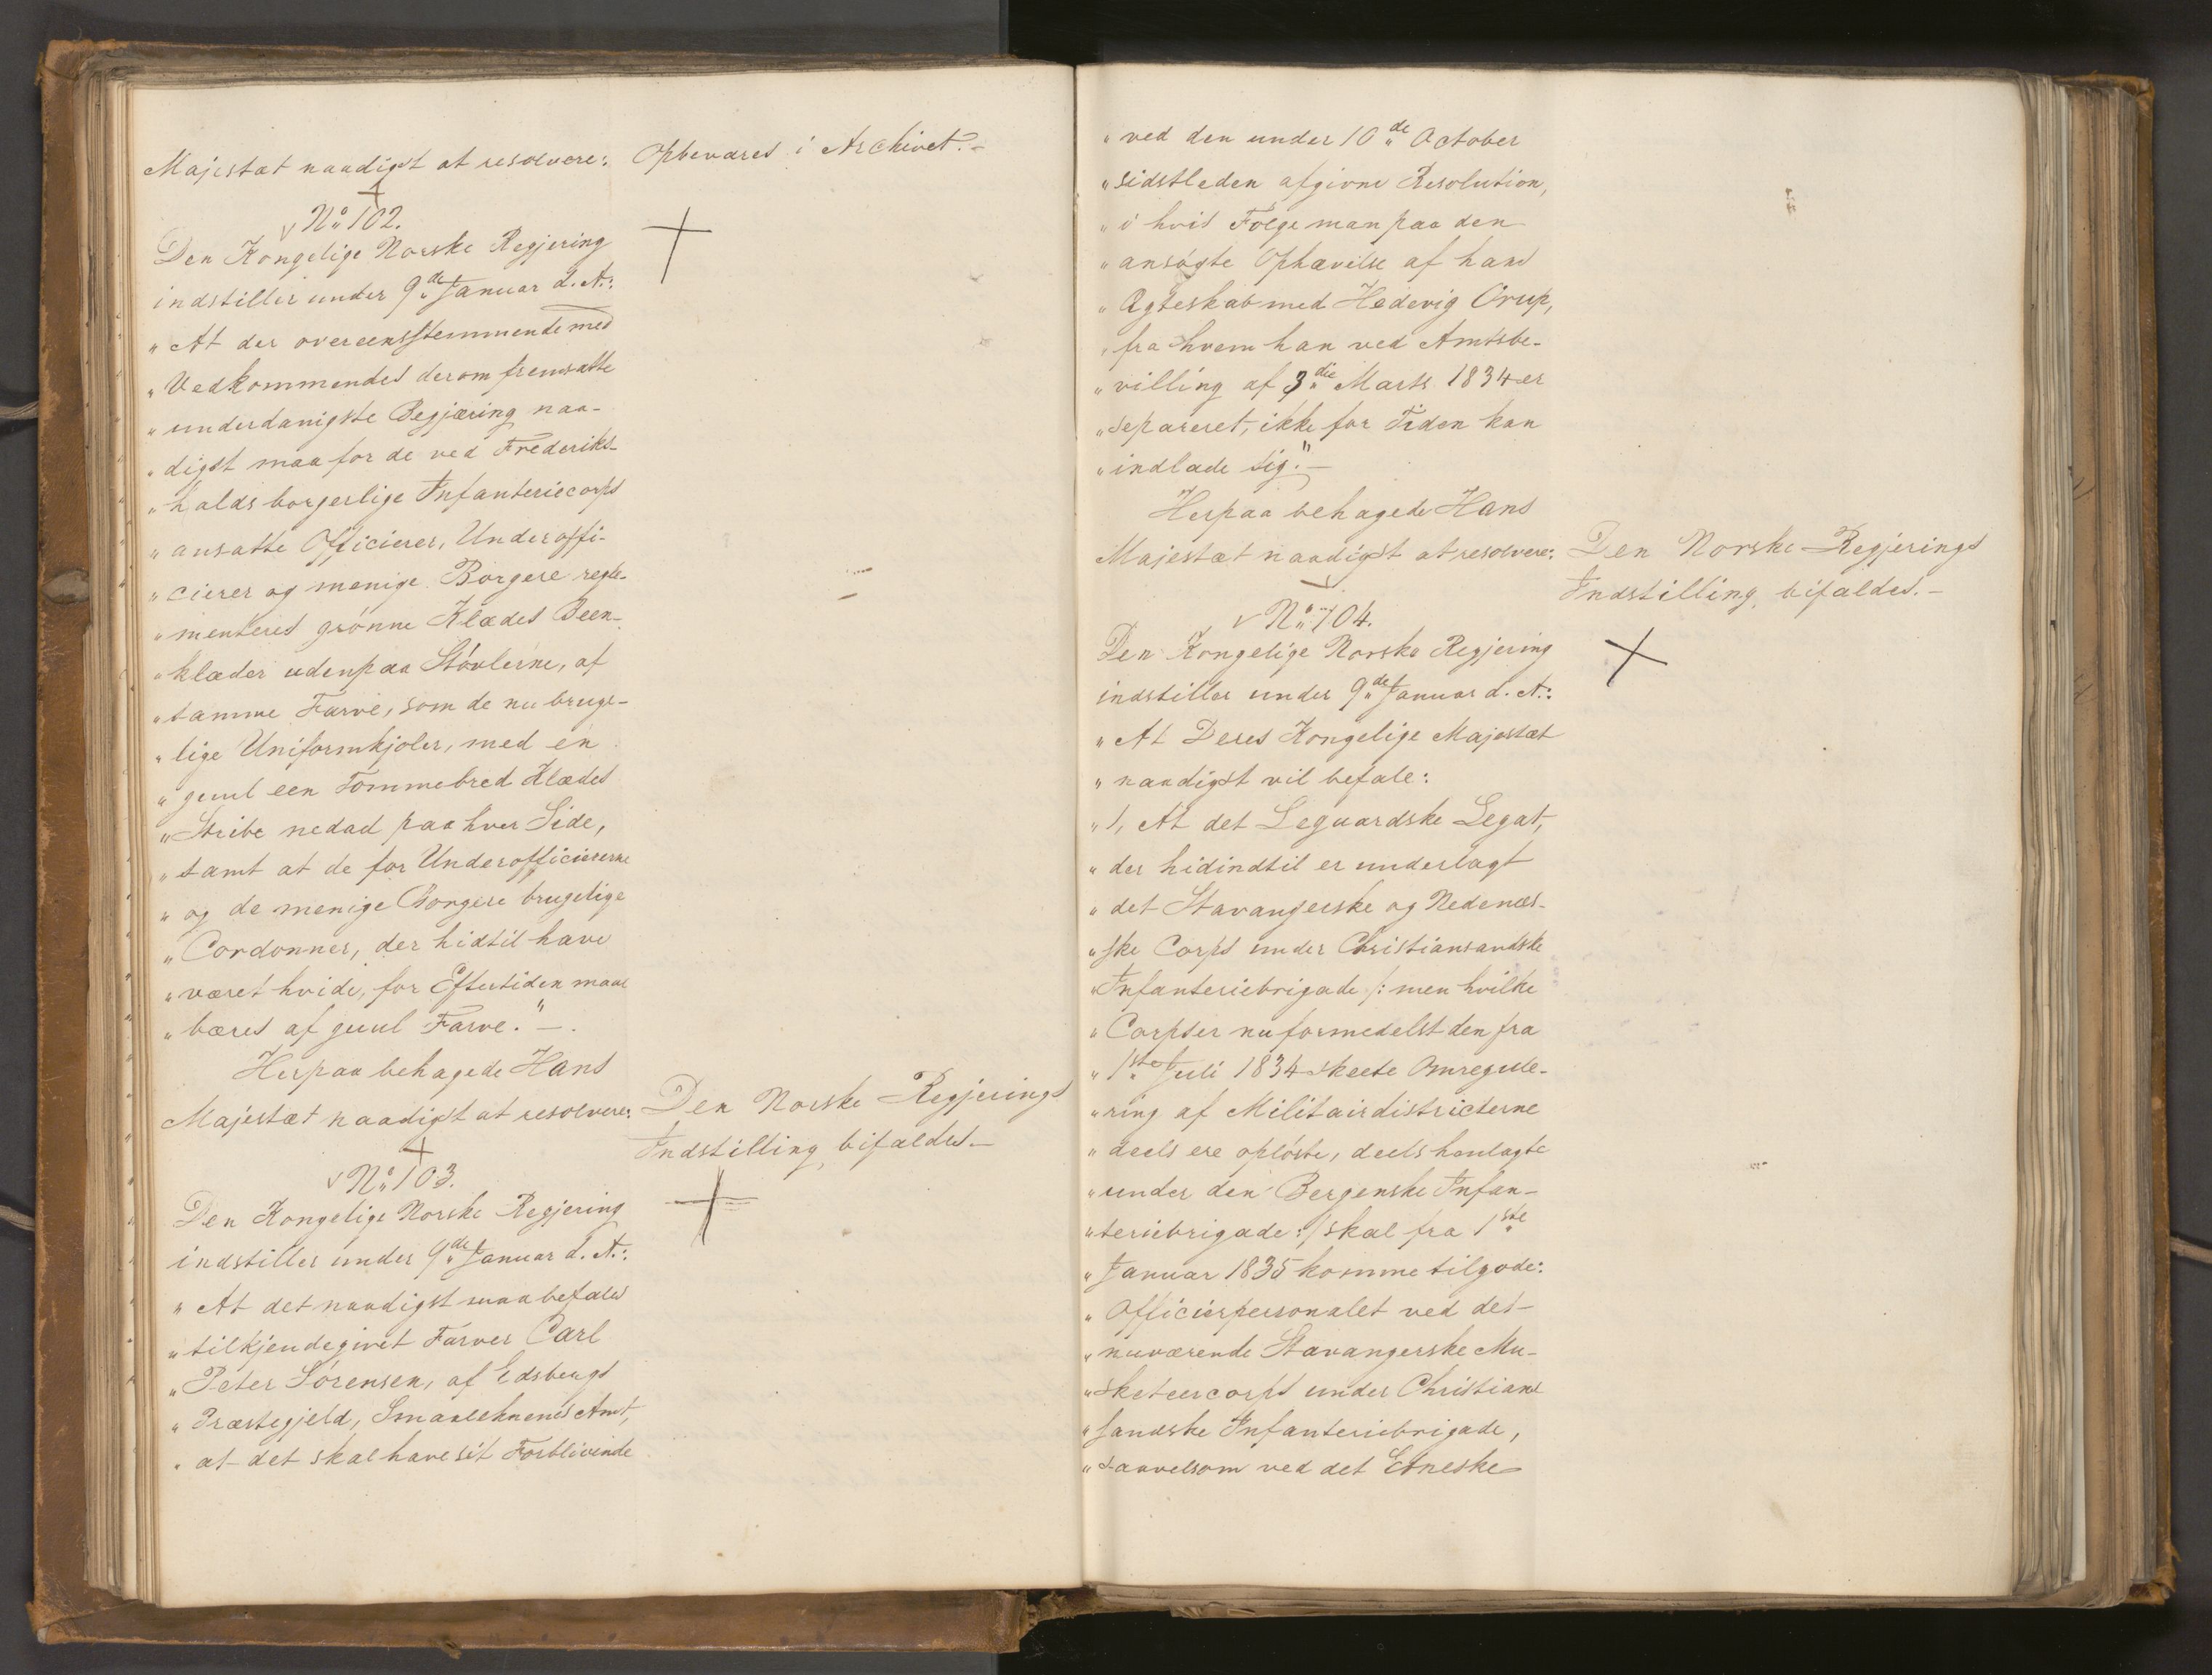 Majestæt naadigst at resolvere: Opbevares i Archivet.-
No 102.
Den Kongelige Norske Regjering
indstiller under 9de Januar d. A.:
„At der overeensstemmende med
„Vedkommendes derom fremsatte
„underdanigste Begjæring naa-
„digst maa for de ved Frederiks-
„halds borgerlige Infanteriecorps
„ansatte Officierer, Underoffi-
„cierer og menige Borgere regle-
„menteres grønne Klædes Been-
„klæder udenpaa Støvlerne, af
„samme Farve, som de nu bruge-
„lige Uniformkjoler, med en
„guul een Tommebred Klædes
„Stribe nedad paa hver Side,
„samt at de for Underofficiererne
„og de menige Borgere brugelige
„Cordonner, der hidtil have
„været hvide, for Eftertiden maae
„bæres af guul Farve."-.
Herpaa behagede Hans
Majestæt naadigst at resolvere: Den Norske Regjerings
Indstilling bifaldes.-
No 103.
Den Kongelige Norske Regjering
indstiller under 9de Januar d. A.:
„At det naadigst maa befales
„tilkjendegivet Farver Carl
„Peter Sørensen, af Edsbergs
„Præstegjeld, Smaalehnenes Amt,
„at det skal have sit Forblivende
„ved den under 10de October
„sidstleden afgivne Resolution,
„i hvis Følge man paa den
„ansøgte Ophævelse af hans
„Ægteskab med Hedevig Orup,
„fra hvem han ved Amtsbe-
„villing af 3die Marts 1834 er
„separeret, ikke for Tiden kan
„indlade sig."-
Herpaa behagede Hans
Majestæt naadigst at resolvere: Den Norske Regjerings
Indstilling bifaldes.-
No 104.
Den Kongelige Norske Regjering
indstiller under 9de Januar d. A.:
„At Deres Kongelige Majestæt
„naadigst vil befale:
„1, At det Leguardske Legat,
„der hidindtil er underlagt
„det Stavangerske og Nedenæs-
„ske Corps under Christiansandske
„Infanteriebrigade /: men hvilke
„Corpser nu formedelst den fra
„1ste Juli 1834 skeete Omregule-
„ring af Militairdistricterne
„deels ere opløste, deels henlagte
„under den Bergenske Infan-
„teriebrigade :/ skal fra 1ste
„Januar 1835 komme tilgode:
„Officierpersonalet ved det
„nuværende Stavangerske Mu-
„sketeercorps under Christian-
„sandske Infanteriebrigade,
„saavelsom ved det Etneske